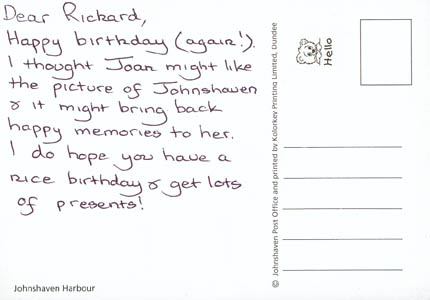 Dear Rickard,
Happy birthday (again!).
I thought Joan might like
the picture of Johnshaven
& it might bring back
happy memories to her.
I do hope you have a
nice birthday & get lots
of presents!
Johnshaven Harbour
© Johnshaven Post Office and printed by Kolorkev Printing Limited, Dundee
Hello